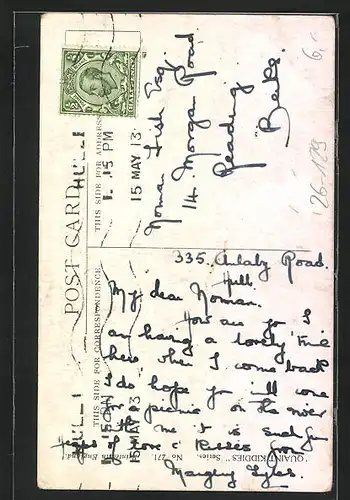 POST CARD
THIS SIDE FOR CORRESPONDENCE
THIS SIDE FOR ADDRESS
HULL
1.15 PM
15 MAY 13
Norman Lish Esq.
14. Morgan Road
Reading
Berks.
6,-
26-129
335. Anlaby Road.
Hull.
My dear Norman.
How are you I
am having a lovely time
here when I come back
I do hope you will come
for a picnic on the river
with me it is such fun
Heaps of love & kisses from
Margery
"QUAINT KIDDIES" Series.
No 271.
Printed in England.